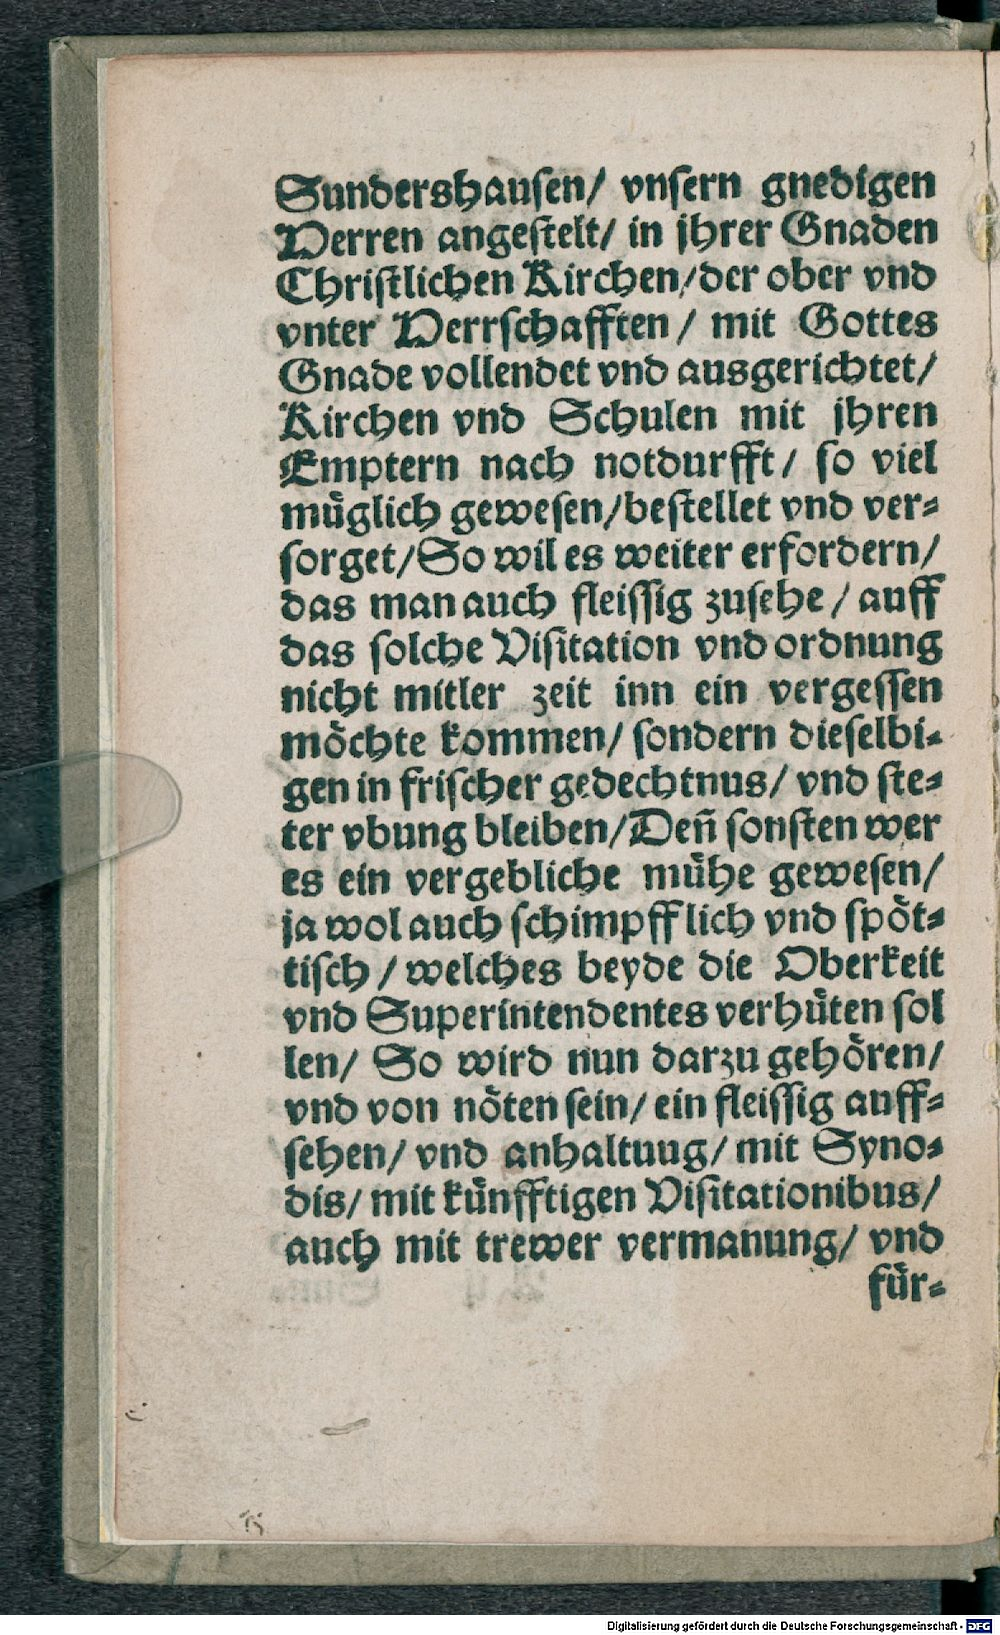 Sundershausen/ vnsern gnedigen
Herren angestelt/ in jhrer Gnaden
Christlichen Kirchen/der ober vnd
vnter Herrschafften / mit Gottes
Gnade vollendet vnd ausgerichtet/
Kirchen vnd Schulen mit jhren
Emptern nach notdurfft/ so viel
müglich gewesen/bestellet vnd ver-
sorget/So wil es weiter erfordern/
das man auch fleissig zusehe / auff
das solche Visitation vnd ordnung
nicht mitler zeit inn ein vergessen
möchte kommen/ sondern dieselbi-
gen in frischer gedechtnus/ vnd ste-
ter vbung bleiben/Deñ sonsten wer
es ein vergebliche mühe gewesen/
ja wol auch schimpfflich vnd spöt-
tisch / welches beyde die Oberkeit
vnd Superintendentes verhüten sol
len/ So wird nun darzu gehören/
vnd von nöten sein/ ein fleissig auff-
sehen/ vnd anhaltuug/ mit Syno-
dis/ mit künfftigen Visitationibus/
auch mit trewer vermanung/ vnd
für-
Digitalisierung gefördert durch die Deutsche Forschungsgemeinschaft - DFG